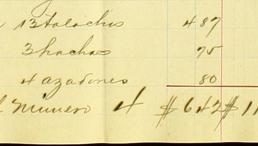 13 talachis 487
3 hachas 75
4 azadones 80
Numero 4 $642 $11